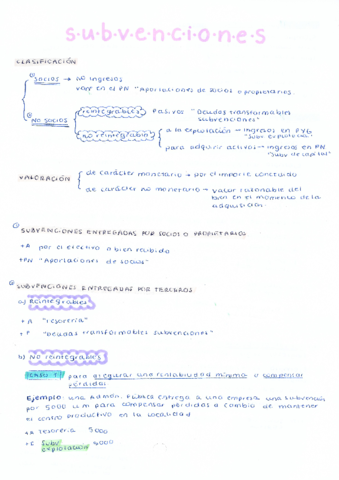 s·u·b·v·e·n·c·i·o·n·e·s
CLASIFICACIÓN
① SOCIOS → no ingresos
van en el PN "Aportaciones de socios o propietarios
② NO SOCIOS
reintegrables → Pasivos "Deudas transformables subvenciones"
no reintegrables
a la explotación → ingresos en PYG "Subv explotación"
para adquirir activos → ingresos en PN "Subv de capital"
VALORACIÓN
de carácter monetario → por el importe concedido
de carácter no monetario → valor razonable del
bien en el momento de la
adquisición
① SUBVENCIONES ENTREGADAS POR SOCIOS O PROPIETARIOS
+A por el efectivo o bien recibido
+PN "Aportaciones de socios"
② SUBVENCIONES ENTREGADAS POR TERCEROS
a) Reintegrables
+A "Tesorería"
+P "Deudas transformables subvenciones"
b) NO reintegrables
CASO 1 para asegurar una rentabilidad mínima o compensar
pérdidas
Ejemplo: una Admón. Pública entrega a una empresa una subvención
por 5000 u.m para compensar pérdidas a cambio de mantener
el centro productivo en su localidad
+A Tesorería 5000
Subv
explotación 5000